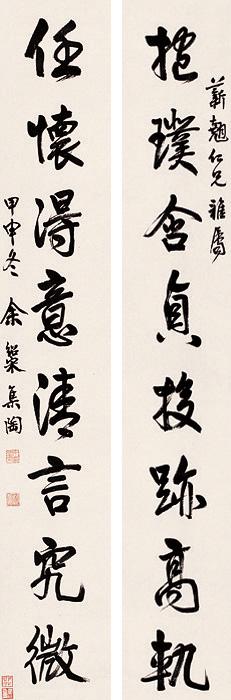 薪翹仁兄雅屬
抱璞含貞投跡高軌
任懷得意清言究微
甲申冬余集陶